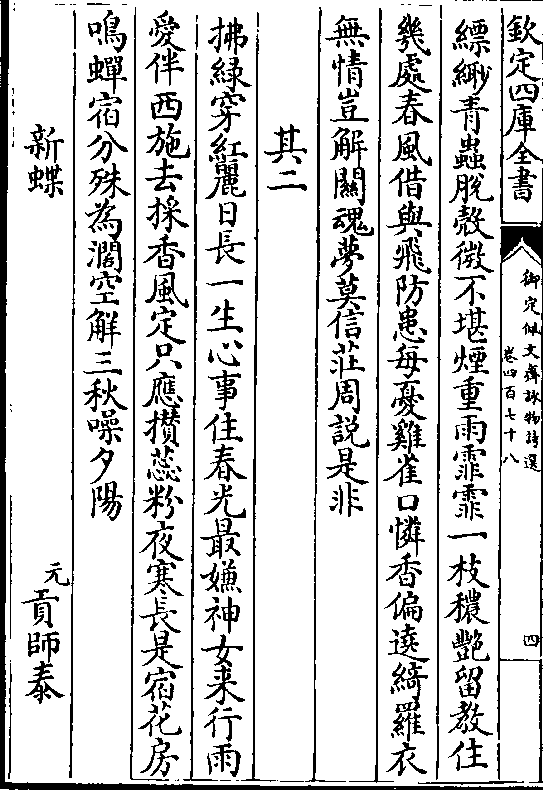 欽定四庫全書
御定佩文齋詠物詩選
卷四百七十八
四
縹緲青蟲脫殼微不堪煙重雨霏霏一枝穠艷留教住
幾處春風借與飛防患每憂雞雀口憐香偏遶綺羅衣
無情豈解關魂夢莫信莊周說是非
其二
拂綠穿紅麗日長一生心事住春光最嫌神女來行雨
愛伴西施去採香風定只應攢蕊粉夜寒長是宿花房
鳴蟬宿分殊為濶空解三秋噪夕陽
新蝶
元貢師泰